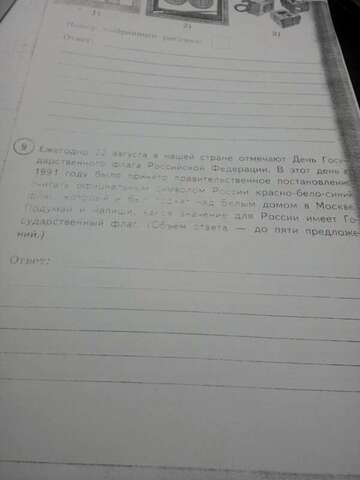 1)
2)
3)
Номер выбранного рисунка:
Ответ:
9 Ежегодно 22 августа в нашей стране отмечают День Госу-
дарственного флага Российской Федерации. В этот день в
1991 году было принято правительственное постановление
считать официальным символом России красно-бело-синий
флаг, который и был поднят над Белым домом в Москве.
Подумай и напиши, какое значение для России имеет Го-
сударственный флаг. (Объём ответа — до пяти предложе-
ний.)
Ответ: